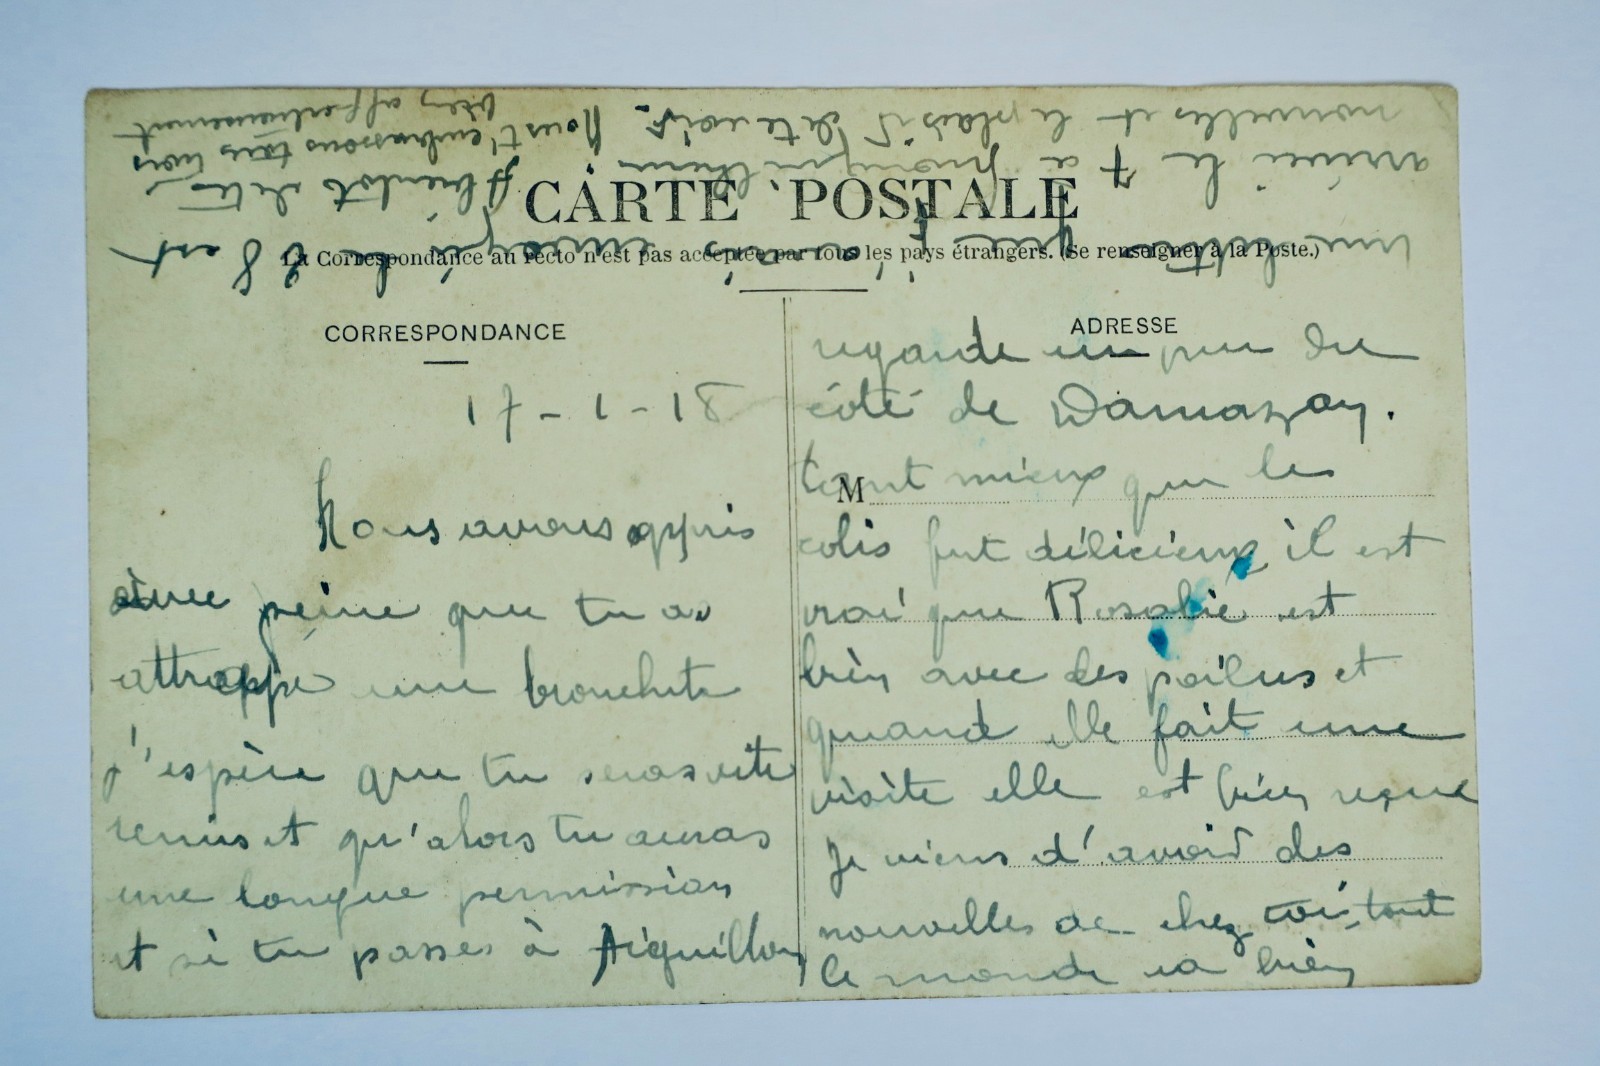 CARTE POSTALE
La Correspondance au recto n'est pas acceptée par tous les pays étrangers. (Se renseigner à la Poste.)
CORRESPONDANCE
17-1-18
Nous avons appris
avec peine que tu as
attrappé une bronchite
j'espère que tu seras vite
remis et qu'alors tu auras
une longue permission
et si tu passes à Aiguillon
ADRESSE
M
regarde un peu du
côté de Damazan.
tant mieux que le
colis fut délicieux, il est
vrai que Rosalie est
bien avec des poilus et
quand elle fait une
visite elle est bien reçue
Je viens d'avoir des
nouvelles de chez toi, tout
le monde va bien
une lettre que j'avais envoyé le 28 est
arrivée le 7 à
A bientôt de tes
nouvelles et le plaisir de te voir. Nous t'embrassons tous trois
bien affectueusement